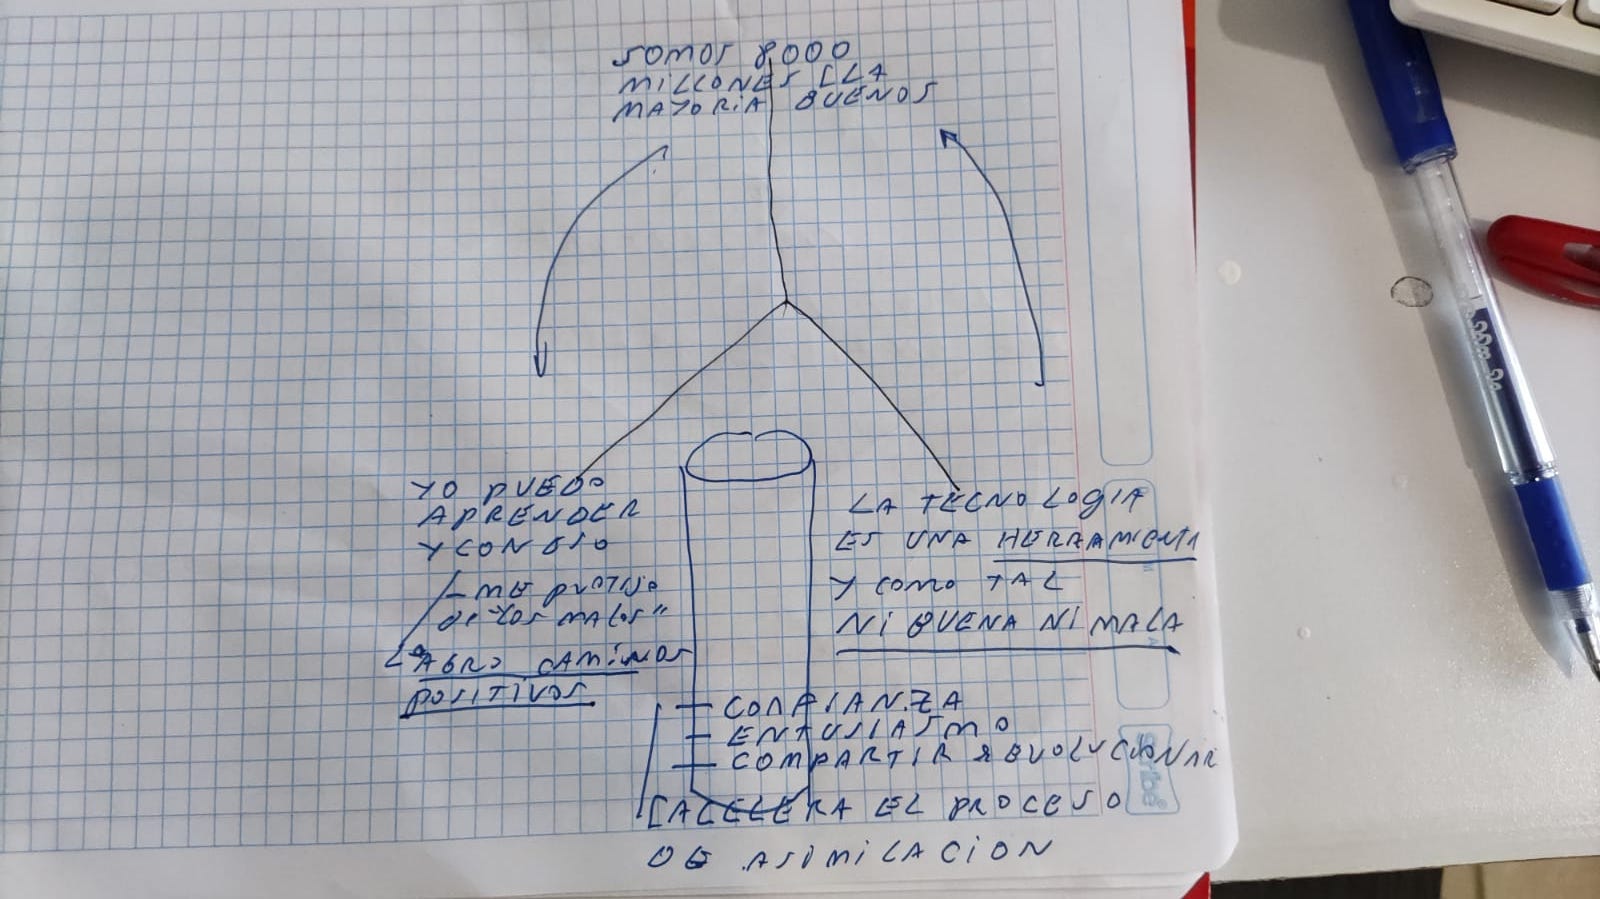 SOMOS 8000
MILLONES [LA
MAYORIA BUENOS
YO PUEDO
APRENDER
Y CON ESO
- ME PROTEJO
DE "LOS MALOS"
ABRO CAMINOS
POSITIVOS
LA TECNOLOGIA
ES UNA HERRAMIENTA
Y COMO TAL
NI BUENA NI MALA
- CONFIANZA
- ENTUSIASMO
- COMPARTIR
[ACELERA EL PROCESO
DE ASIMILACION
scribe